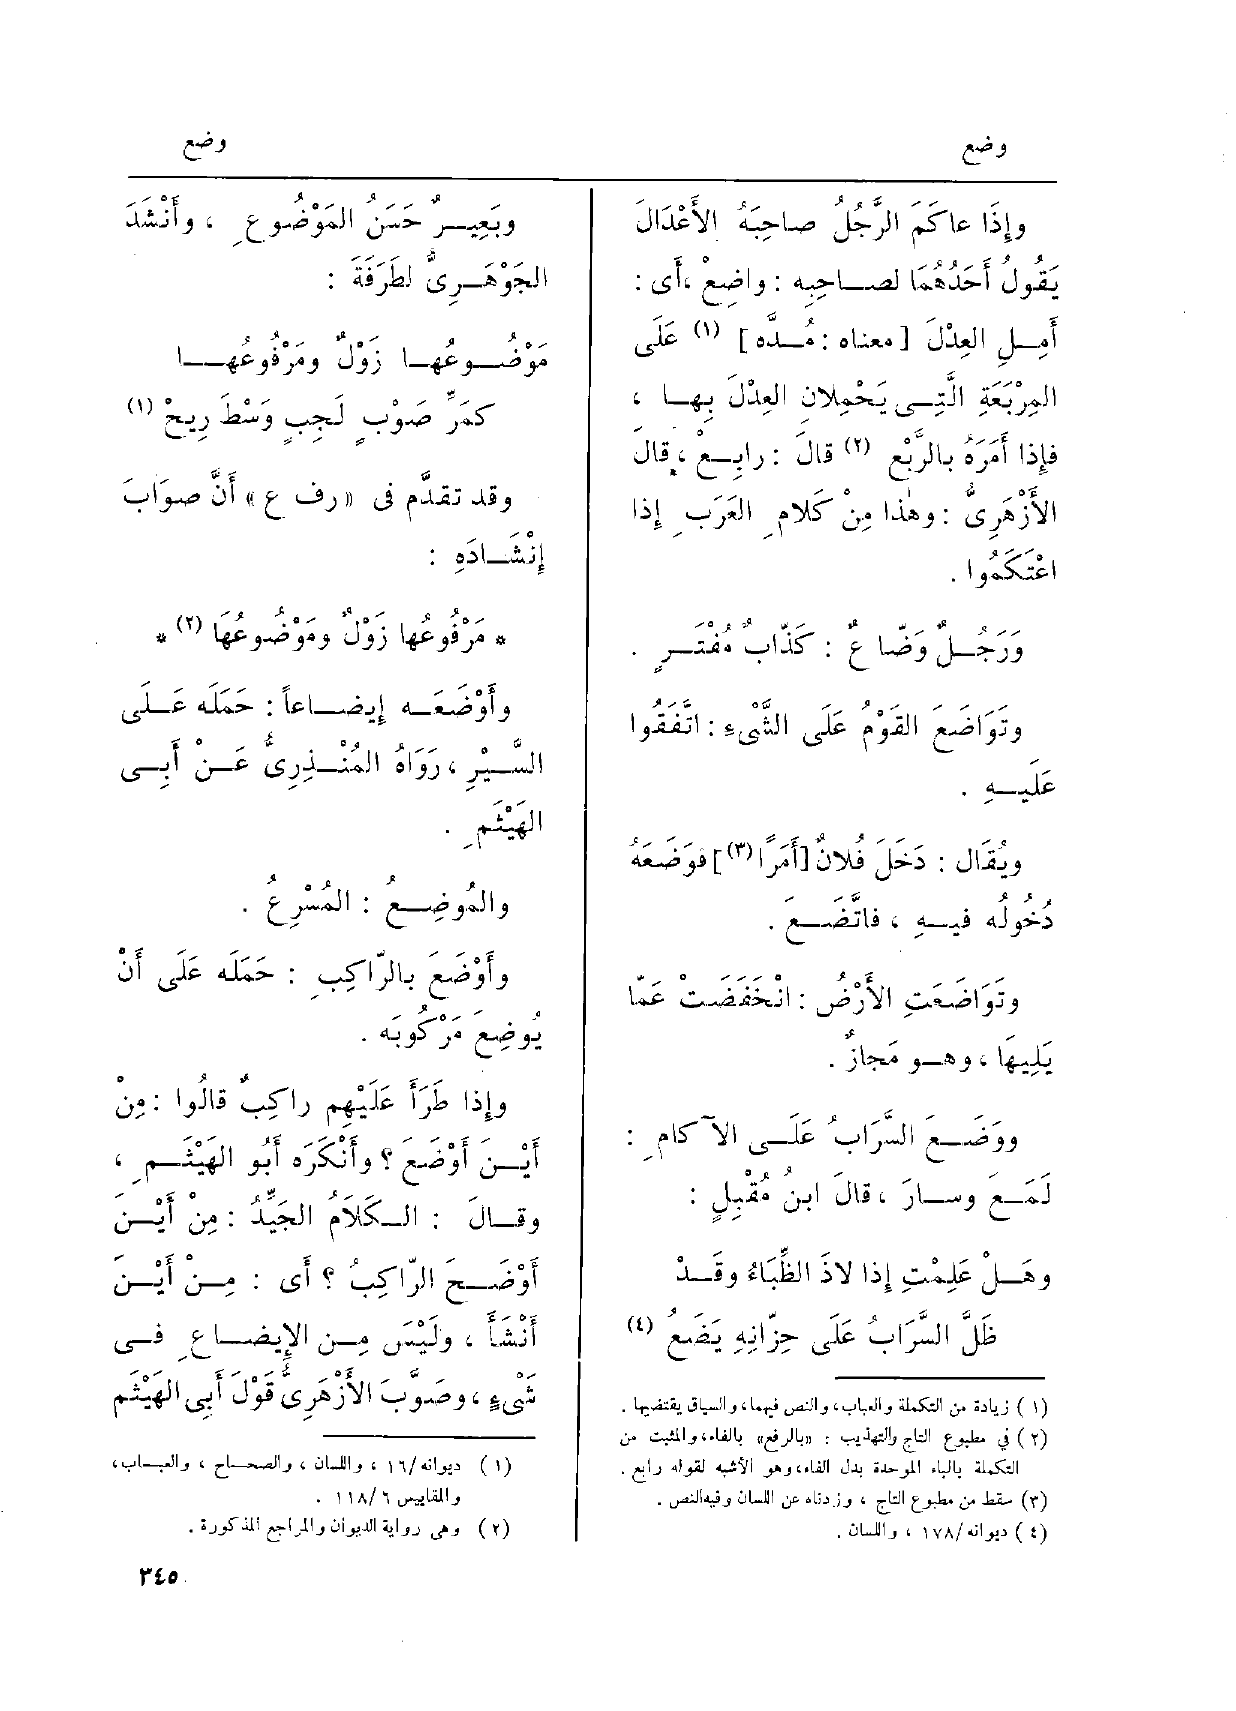 وضع
وضع
وإِذَا عاكَمَ الرَّجُلُ صاحِبَهُ الأَعْدَالَ
يَقُولُ أَحَدُهُمَا لصاحِبِه : واضِعْ ،أَى :
أَمِلِ العِدْلَ [ معناه : مُدَّه ] (١) عَلَى
المِرْبَعَةِ الَّتِى يَحْمِلانِ العِدْلَ بِها ،
فإِذا أَمَرَهُ بالرَّبْعِ (٢) قالَ : رابِعْ ، قالَ
الأَزْهَرِىُّ : وهٰذا مِنْ كَلامِ العَرَبِ إِذا
اعْتَكَمُوا .
وَرَجُلٌ وَضّاعٌ : كَذّابٌ مُفْتَرٍ .
وتَوَاضَعَ القَوْمُ عَلَى الشَّىْءِ : اتَّفَقُوا
عَلَيهِ .
ويُقَال : دَخَلَ فُلانٌ [أَمْرًا (٣)] فوَضَعَهُ
دُخُولُه فيهِ ، فاتَّضَعَ .
وتَوَاضَعَتِ الأَرْضُ : انْخَفَضَتْ عَمّا
يَلِيهَا ، وهو مَجازٌ .
ووَضَعَ السَّرَابُ عَلَى الآكامِ :
لَمَعَ وسارَ ، قالَ ابنُ مُقْبِلٍ :
وهَلْ عَلِمْتِ إِذا لاذَ الظِّبَاءُ وقَدْ
ظَلَّ السَّرَابُ عَلَى حِزّانِهِ يَضَعُ (٤)
(١) زيادة من التكملة والعباب، والنص فيهما، والسياق يقتضيها .
(٢) فى مطبوع التاج والتهذيب : «بالرفع» بالفاء، والمثبت من
التكملة بالباء الموحدة بدل الفاء، وهو الأشبه لقوله رابع .
(٣) سقط من مطبوع التاج ، وزدناه عن اللسان وفيه النص .
(٤) ديوانه/١٧٨ ، واللسان .
وبَعِيرٌ حَسَنُ المَوْضُوعِ ، وأَنْشَدَ
الجَوْهَرِىُّ لطَرَفَةَ :
مَوْضُوعُها زَوْلٌ ومَرْفُوعُها
كمَرِّ صَوْبٍ لَجِبٍ وَسْطَ رِيحْ (١)
وقد تقدَّم فى «رف ع» أَنَّ صوَابَ
إِنْشَادَهِ :
* مَرْفُوعُها زَوْلٌ ومَوْضُوعُهَا (٢) *
وأَوْضَعَه إِيضاعاً : حَمَلَه عَلَى
السَّيْرِ ، رَوَاهُ المُنْذِرِىُّ عَنْ أَبِى
الهَيْثَمِ .
والمُوضِعُ : المُسْرِعُ .
وأَوْضَعَ بالرّاكِبِ : حَمَلَه عَلَى أَنْ
يُوضِعَ مَرْكُوبَه .
وإِذا طَرَأَ عَلَيْهِم راكِبٌ قالُوا : مِنْ
أَيْنَ أَوْضَعَ ؟ وأَنْكَرَه أَبُو الهَيْثَمِ ،
وقالَ : الكَلَامُ الجَيِّدُ : مِنْ أَيْنَ
أَوْضَحَ الرّاكِبُ ؟ أَى : مِنْ أَيْنَ
أَنْشَأَ ، ولَيْسَ مِن الإِيضاعِ فى
شَىْءٍ ، وصَوَّبَ الأَزْهَرِىُّ قَوْلَ أَبى الهَيْثَم
(١) ديوانه/١٦ ، واللسان ، والصحاح ، والعباب،
والمقاييس ٦/١١٨ .
(٢) وهى رواية الديوان والمراجع المذكورة .
٣٤٥